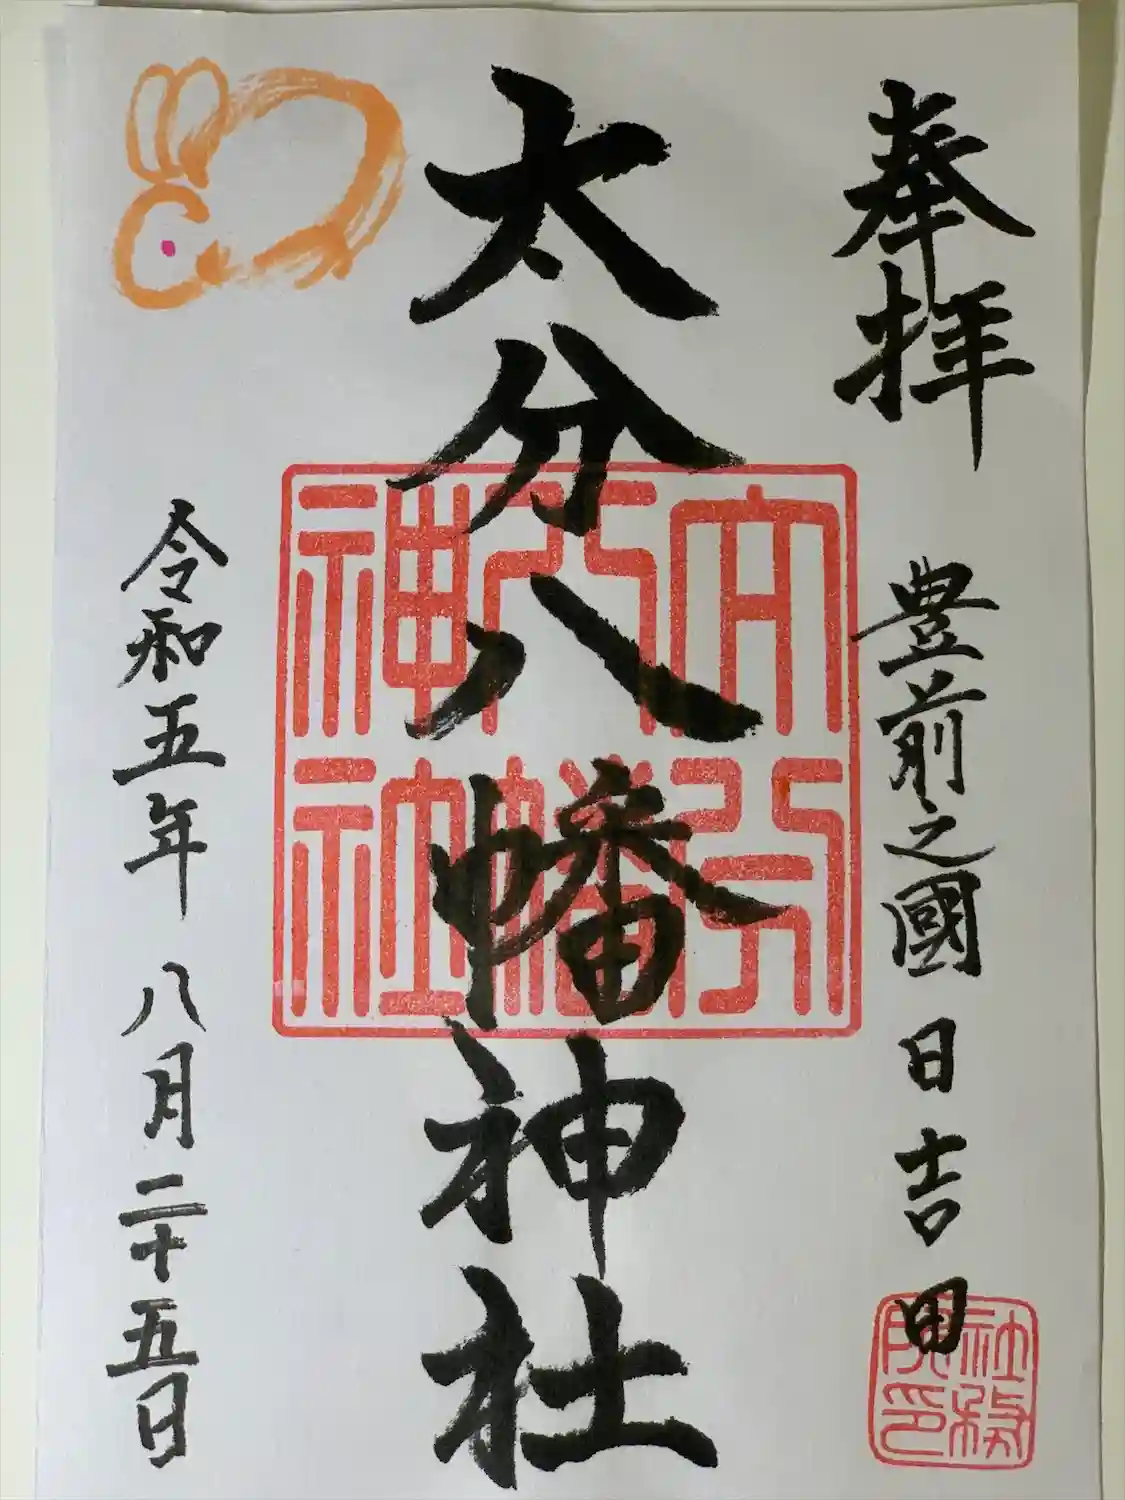 奉拝
豊前之國 日吉田
太分八幡神社
令和五年八月二十五日
大分
八幡
神社
社務
印